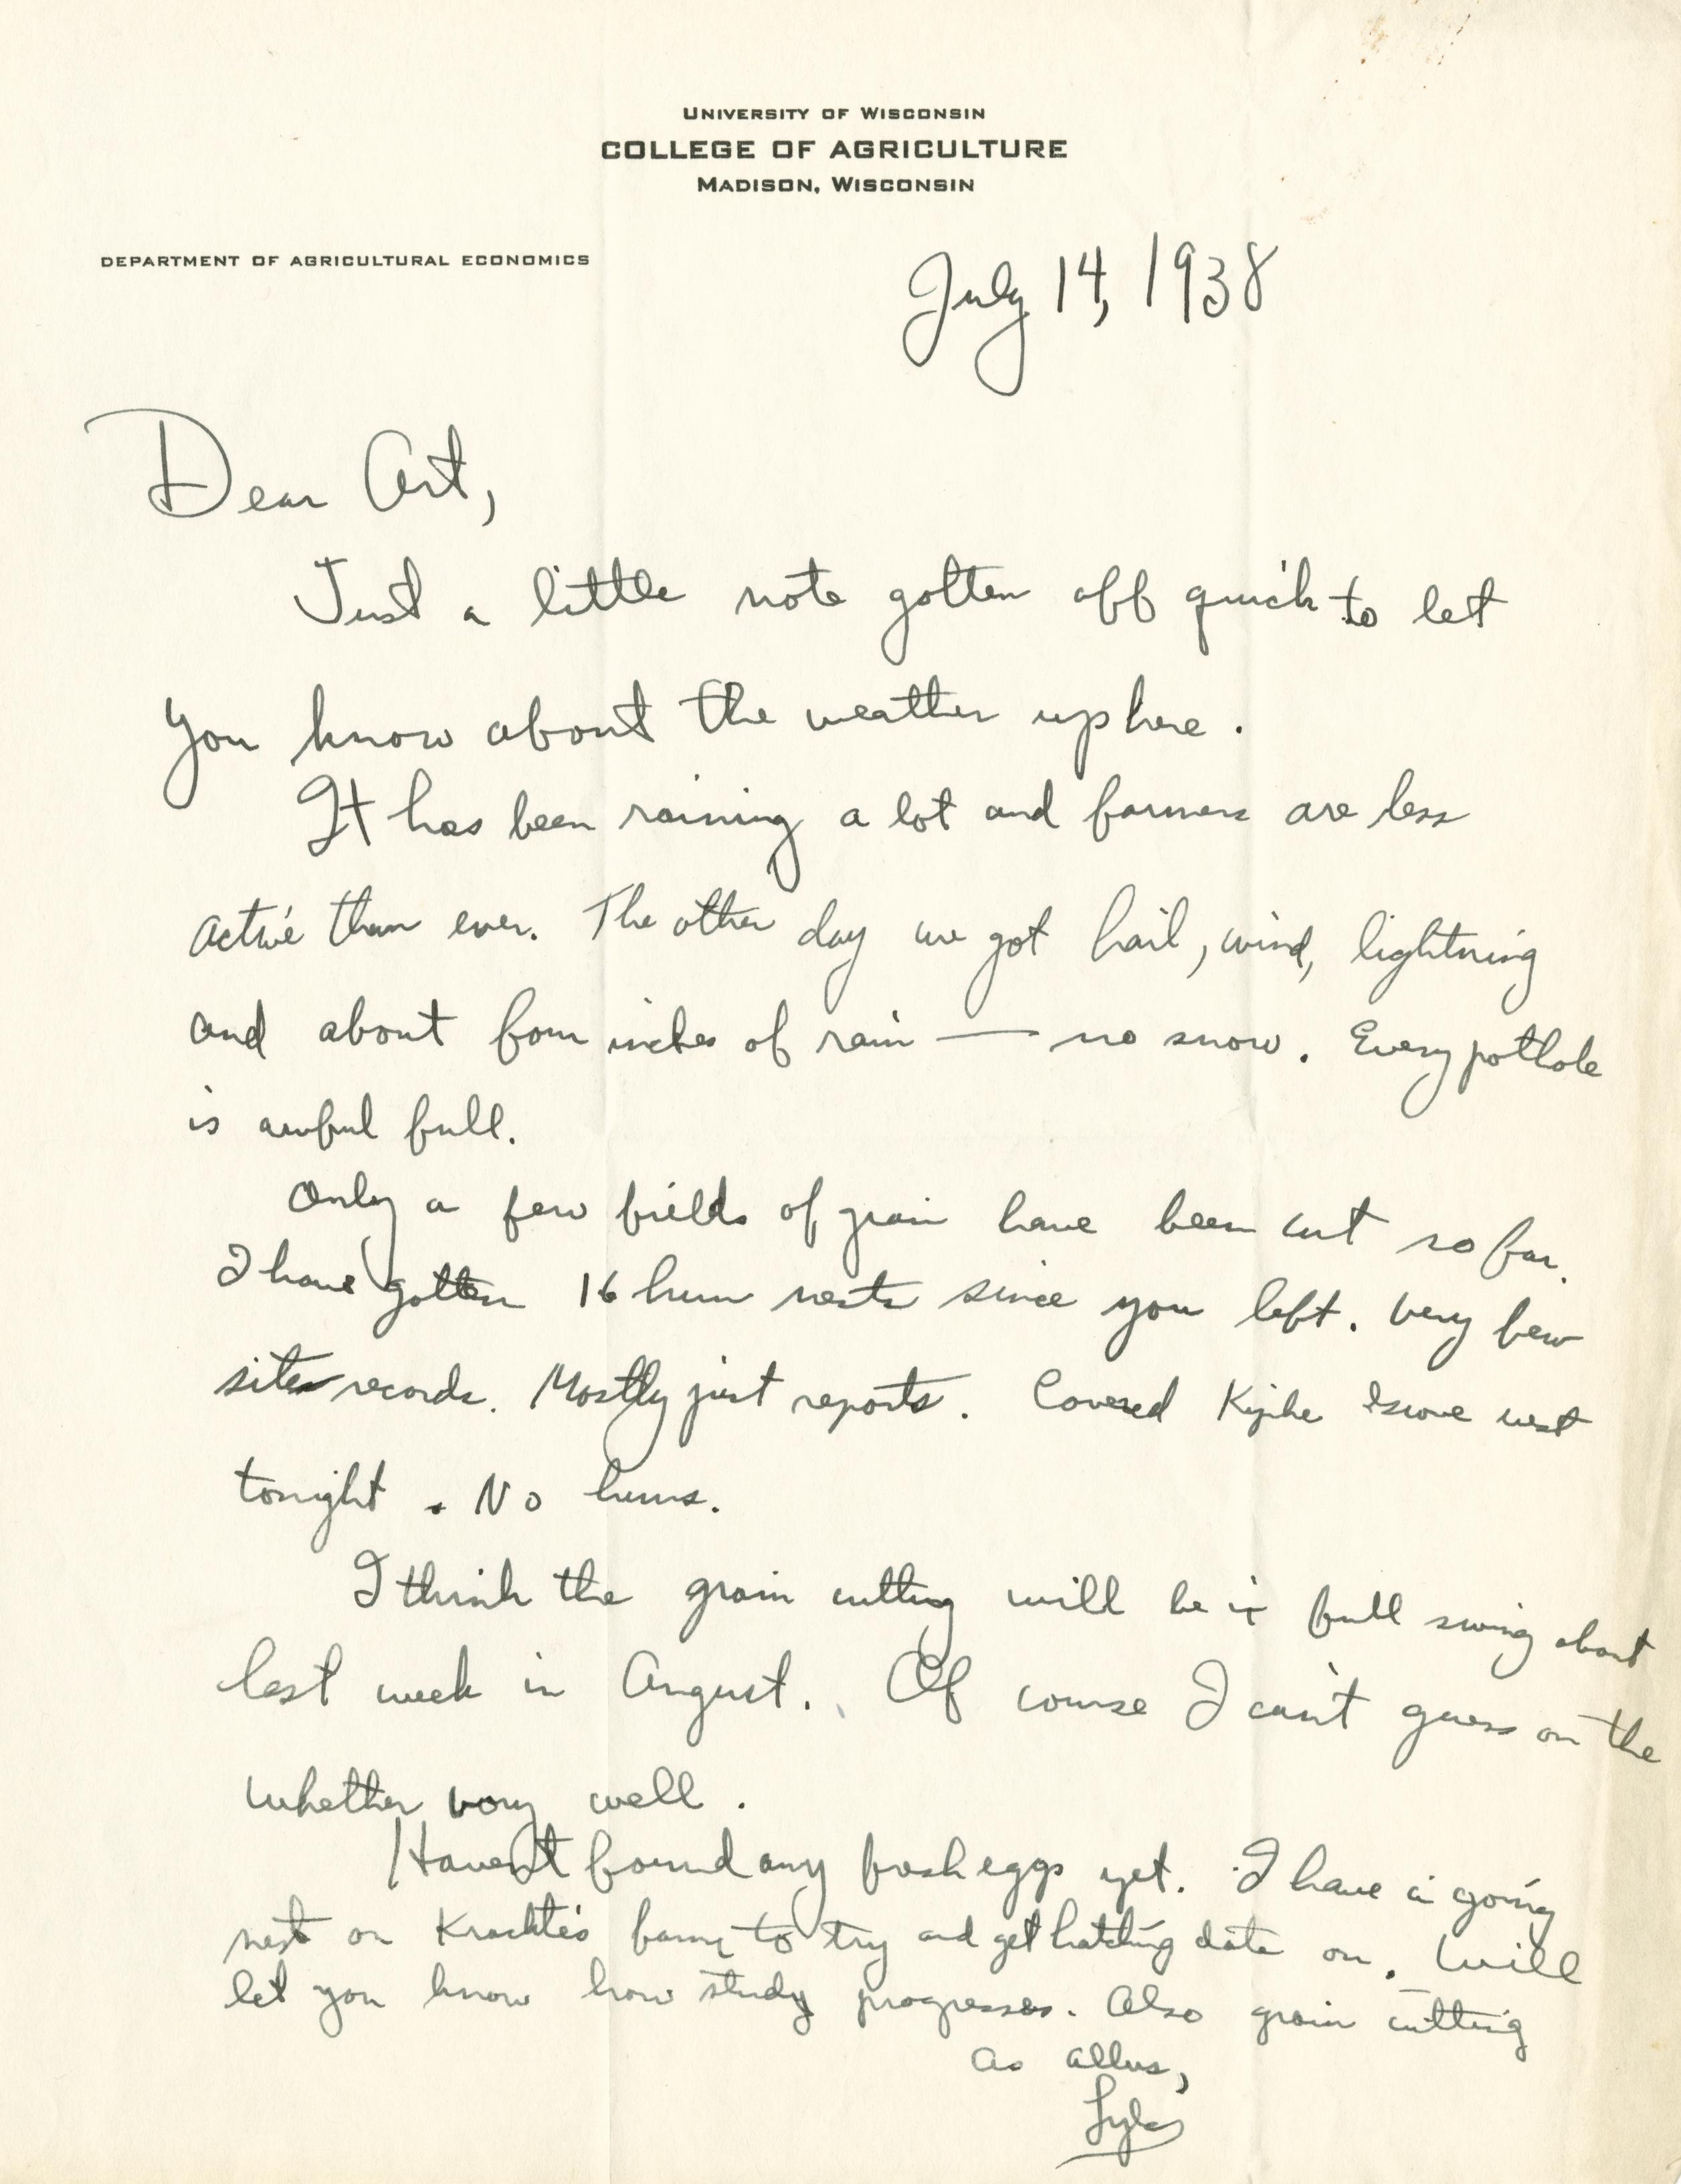 UNIVERSITY OF WISCONSIN
COLLEGE OF AGRICULTURE
MADISON, WISCONSIN
DEPARTMENT OF AGRICULTURAL ECONOMICS
July 14, 1938
Dear Art,
Just a little note gotten off quick to let
you know about the weather up here.
It has been raining a lot and farmers are less
active than ever. The other day we got hail, wind, lightning
and about four inches of rain — no snow. Every pothole
is awful full.
Only a few fields of grain have been cut so far.
I have gotten 16 hun nests since you left. Very few
site records. Mostly just reports. Covered west
tonight. No huns.
I think the grain cutting will be in full swing about
last week in August. Of course I can't guess on the
whether very well.
Haven't found any fresh eggs yet. I have a going
nest on farm to try and get hatching date on. Will
let you know how study progresses. Also grain cutting
As allus,
Lyle